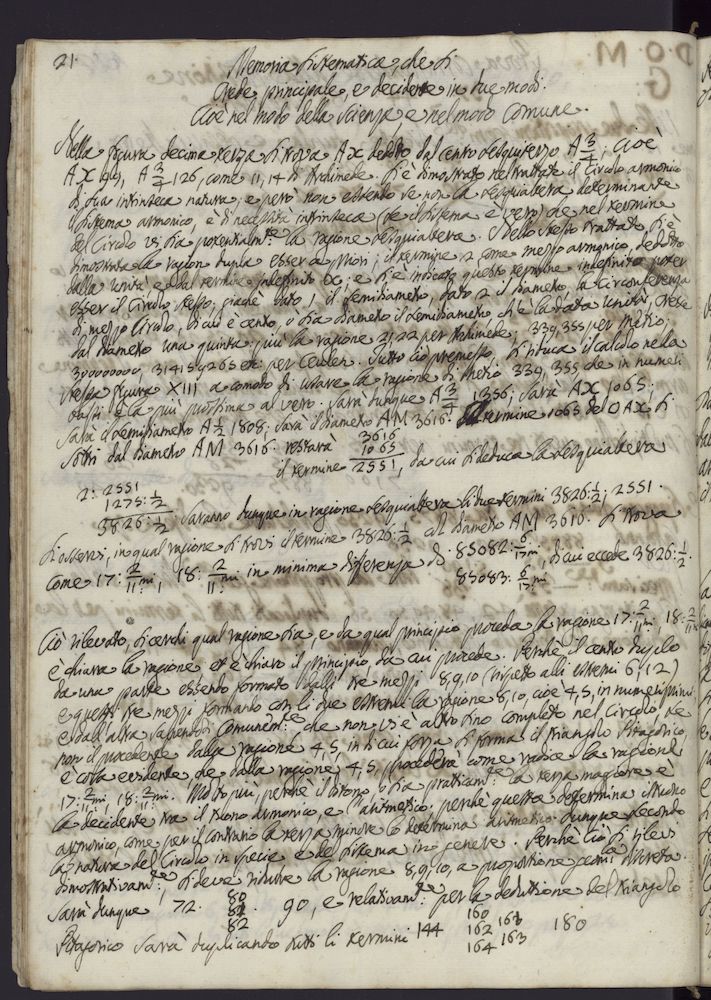 21.
Memoria sistematica, che si
crede principale, e decidente in due modi.
Cioè nel modo della scienza, e nel modo comune.
Nella figura decima terza si trova AX dedotto dal centro sesquiterzo A 3/4; cioè
AX 99, A 3/4 126, come 11, 14 di Archimede. Si è dimostrato nel trattato il Circolo armonico
di sua intrinseca natura, e però non essendo se non la sesquialtera determinante
il sistema armonico, è di necessità intrinseca (se il sistema è vero) che nel termine
del Circolo vi sia potenzialm.te la ragione sesquialtera. Nello stesso trattato si è
dimostrata la ragion dupla esser a priori; il termine 2 come mezzo armonico, dedotto
dalla unità, e dal termine indefinito; e si è indicato questo termine indefinito poter
esser il Circolo stesso; giacchè dato 1 il semidiametro, dato 2 il diametro, la Circonferenza
di mezzo Circolo, di cui è cento, o sia diametro il semidiametro, ch'è la data unità, cresce
dal diametro una quinta più la ragione 21, 22 per Archimede; 339, 355 per Metio;
300000000, 314159265 etc: per Ceulen. Tutto ciò premesso, si riduca il calcolo nella
stessa figura XIII a comodo di usare la ragione di Metio 339, 355 che in numeri
bassi è la più prossima al vero. Sarà dunque A 3/4 1356; sarà AX 1065;
sarà il semidiametro A 1/2 1808; sarà il diametro AM 3616. Il termine 1065 del AX si
sottri dal diametro AM 3616. restarà 3616
1065
il termine 2551, da cui si deduca la sesquialtera
2: 2551
1275: 1/2
3826: 1/2 Saranno dunque in ragione sesquialtera li due termini 3826: 1/2; 2551.
Si osservi, in qual ragione si trovi il termine 3826: 1/2 al diametro AM 3616. Si trova
come 17: 2/11:mi, 18: 2/11:mi in minima differenza di 85082: 6/17:mi
85083: 6/17:mi, di cui eccede 3826: 1/2.
Ciò rilevato, si cerchi qual ragione sia, e da qual principio proceda la ragione 17: 2/11:mi, 18: 2/11:mi
è chiara la ragione, et è chiaro il principio, da cui procede. Perchè il centro duplo
da una parte essendo formato dalli tre mezzi 8, 9, 10 (rispetto alli estremi 6, 12)
e questi tre mezzi formando con li due estremi la ragione 8, 10, cioè 4, 5, in numeri primi
e dall'altra sapendosi Comunem.te, che non vi è altro sino completo nel Circolo, se
non il procedente dalla ragione 4, 5, in di cui forza si forma il triangolo Pitagorico,
è cosa evidente, che dalla ragione 4, 5, procederà come radice la ragione
17: 2/11:mi, 18: 2/11:mi. Molto più, perchè il ditono, o sia praticam.te la terza maggiore è
la decidente tra il sistema armonico, e l'aritmetico: perchè questa determina il sistema
armonico, come per il contrario la terza minore lo determina aritmetico. Dunque secondo
la natura del Circolo in specie, e del sistema in genere. Perchè ciò si rilevi
dimostrativam.te, si deve ridurre la ragione 8, 9, 10, a proporzione geom.a discreta.
Sarà dunque 72. 80
81
82 . 90, e relativam.te per la deduzione del triangolo
Pitagorico sarà duplicando tutti li termini 144 160
162 161
164 163 180